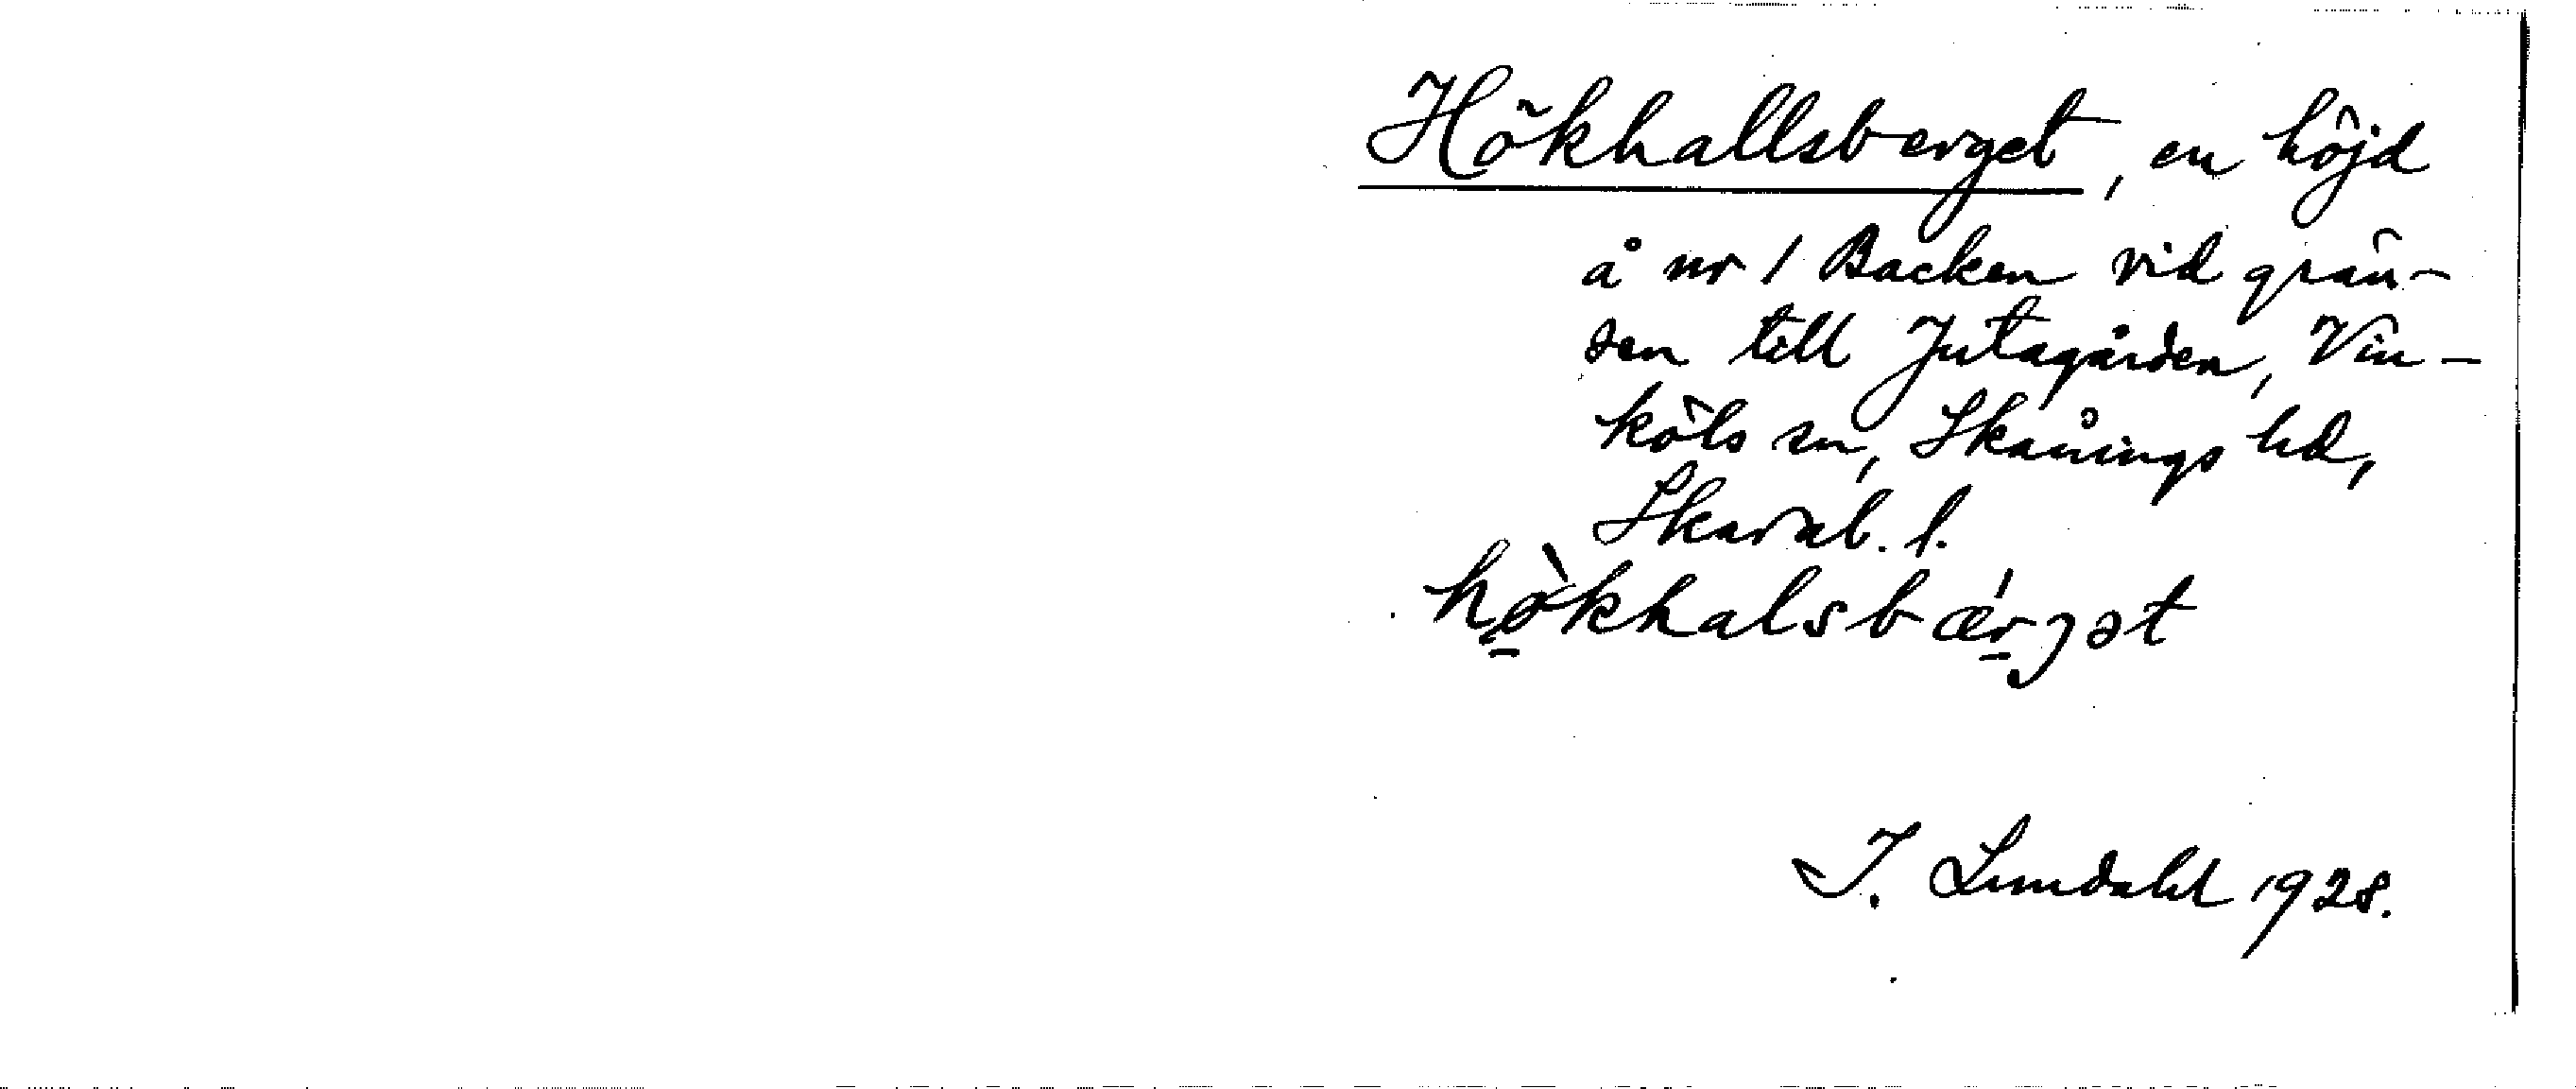 Hökhallsberget, en höjd
å nr 1 Backen vid grän-
sen till Jutagården, Vin-
köls sn, Skånings hd,
Skarab. l.
hø̀khalsbǽrjət
I. Lundahl 1928.